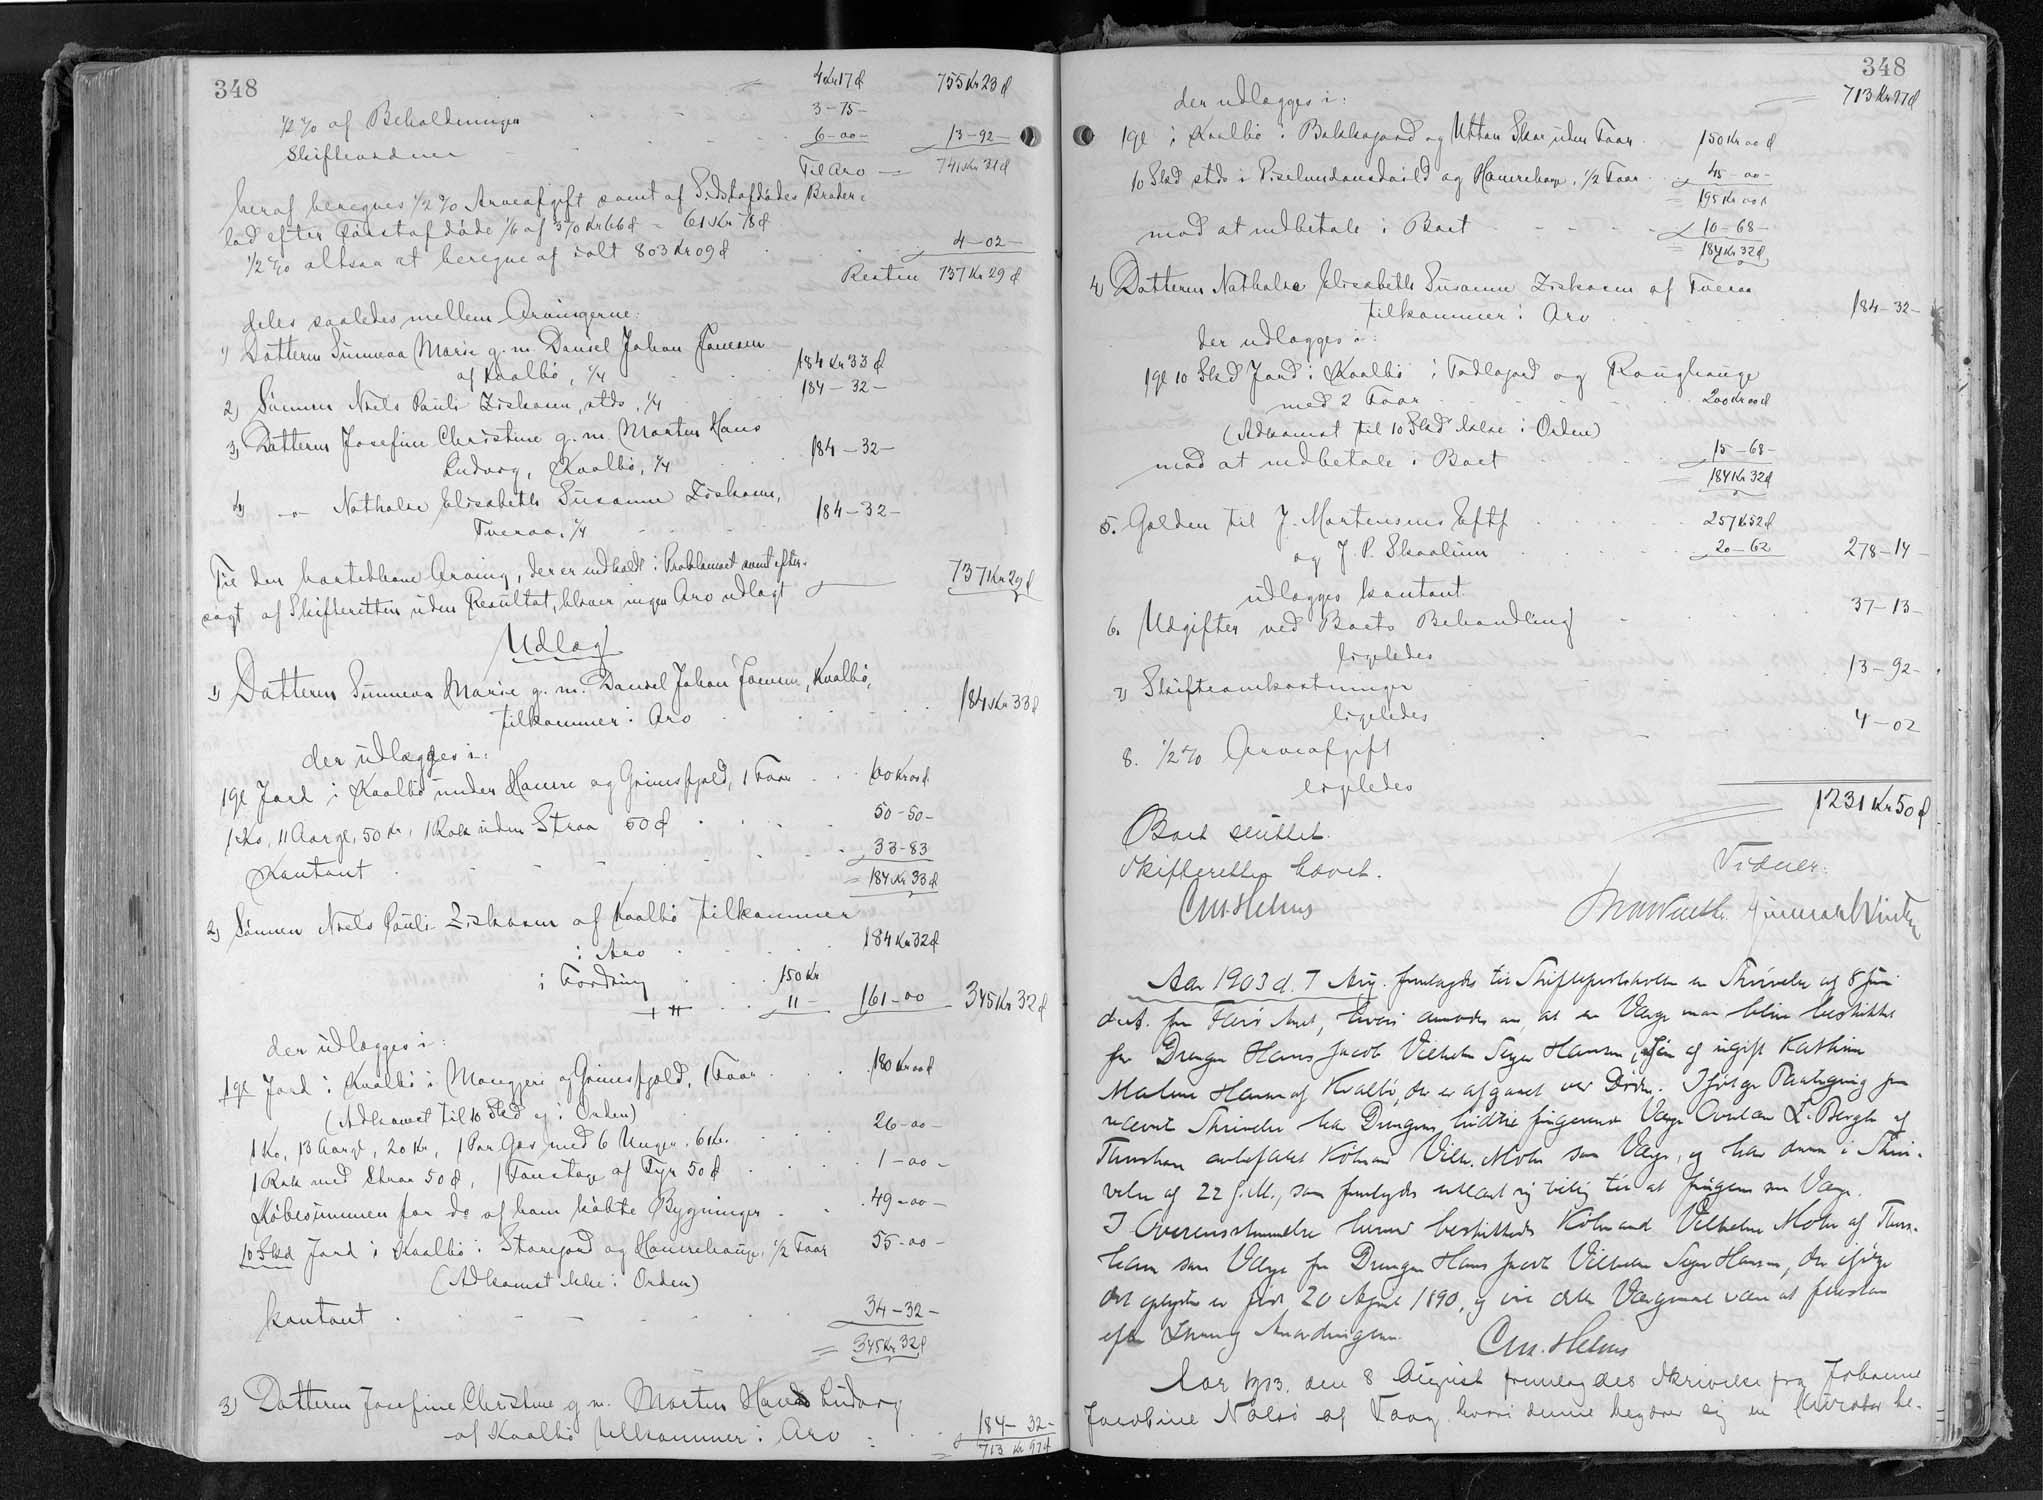 348
4 Kr 17 Ø 755 Kr 23 Ø
½ % af Beholdningen 3-75-
Skifteordner 6-00- 13-92-
Til Arv 741 Kr 31 Ø
heraf beregnes ½ % Arveafgift samt af Sidstafdødes Broder-
lod efter Førstafdøde 1/6 af 370 Kr 66 Ø = 61 Kr 78 Ø
½ % altsaa at beregne af ialt 803 Kr 09 Ø 4-02-
Resten 737 Kr 29 Ø
deles saaledes mellem Arvingerne:
1) Datteren Sunneva Marie g. m. Daniel Johan Joensen
af Kvalbø, ¼ 184 Kr 33 Ø
2) Sønnen Niels Pauli Ziskasen, stds, ¼ 184-32-
3) Datteren Josefine Christine g. m. Morten Hans
Ludvig, Kvalbø, ¼ 184-32-
4) -"- Nathalie Elisabeth Susanne Ziskasen,
Tveraa, ¼ 184-32-
737 Kr 29 Ø
Til den bortebleve Arving, der er indkaldt i Proklamaet samt efter-
søgt af Skifteretten uden Resultat, bliver ingen Arv udlagt
Udlæg
1) Datteren Sunneva Marie g. m. Daniel Johan Joensen, Kvalbø,
tilkommer i Arv 184 Kr 33 Ø
der udlægges i:
1 gl Jord i Kvalbø under Havere og Grimsfjeld, 1 Faar 100 Kr 00 Ø
1 Ko, 11 Aar gl, 50 Kr, 1 Rok uden Straa 50 Ø 50-50-
Kontant 33-83
= 184 Kr 33 Ø
2) Sønnen Niels Pauli Ziskasen af Kvalbø tilkommer
i Arv 184 Kr 32 Ø
i Fordring 150 Kr
i " 11- 161-00 345 Kr 32 Ø
der udlægges i:
1 gl Jord i Kvalbø i og Grimsfjeld, 1 Faar 180 Kr 00 Ø
(Adkomst til 10 Skd ej i Orden)
1 Ko, 13 Aar gl, 20 Kr, 1 Par Gæs med 6 Unger, 6 Kr. 26-00-
1 Rok med Straa 50 Ø, 1 af Fyr 50 Ø 1-00-
Købesummen for de af ham købte Bygninger 49-00-
10 Skd Jord i Kvalbø i og Haverehauge, ½ Faar 55-00-
(Adkomst ikke i Orden)
kontant 34-32-
= 345 Kr 32 Ø
3) Datteren Josefine Christine g. m. Morten Hans Ludvig
af Kvalbø tilkommer i Arv 184-32-
713 Kr 97 Ø
348
713 Kr 97 Ø
der udlægges i:
1 gl i Kvalbø i Bakkagaard og Uttan Skar uden Faar 150 Kr 00 Ø
10 Skd stds i og Haverehauge, ½ Faar 45-00-
= 195 Kr 00 Ø
mod at indbetale i Boet 10-68-
= 184 Kr 32 Ø
4) Datteren Nathalie Elisabeth Susanne Ziskasen af Tveraa
tilkommer i Arv 184-32-
der udlægges i:
1 gl 10 Skd Jord i Kvalbø i og
med 2 Faar 200 Kr 00 Ø
(Adkomst til 10 Skd ikke i Orden)
mod at indbetale i Boet 15-68-
= 184 Kr 32 Ø
5. Gælden til J. Mortensens Eftf 257 Kr 52 Ø
og J. P. Skaalum 20-62 278-14-
udlægges kontant.
6. Udgifter ved Boets Behandling 37-13-
ligeledes
7) Skifteomkostninger 13-92-
ligeledes
8. ½ % Arveafgift 4-02
ligeledes
1231 Kr 50 Ø
Boet sluttet.
Skifteretten hævet.
Vidner:
C.M. Helms
Aar 1903 d. 7 Aug. fremlagdes til Skifteprotokollen en Skrivelse af 8 Juni
d.A. fra Færø Amt, hvori anmodes om, at en Værge maa blive beskikket
for Drengen Hans Jacob Vilhelm Hansen, Søn af ugift Kathrine
Malene Hansen af Kvalbø, der er afgaaet ved Døden. Ifølge Paategning paa
nævnte Skrivelse har Drengens hidtil fungerende Værge L. Bergh af
Thorshavn anbefalet Købmand Vilh. Mohr som Værge, og har denne i Skri-
velse af 22 f.M., som fremlagdes erklæret sig villig til at fungere som Værge.
I Overensstemmelse herved beskikkedes Købmand Vilhelm Mohr af Thors-
havn som Værge for Drengen Hans Jacob Vilhelm Hansen, der ifølge
det oplyste er født 20 April 1890, og vil dette Værgemaal være at forestaa
efter Lov og Anordningerne.
C.M. Helms
Aar 1903. den 8 August fremlagdes Skrivelse fra Johanne
Jacobine Nolsø af Vaag hvori denne begærer sig en Kurator be-